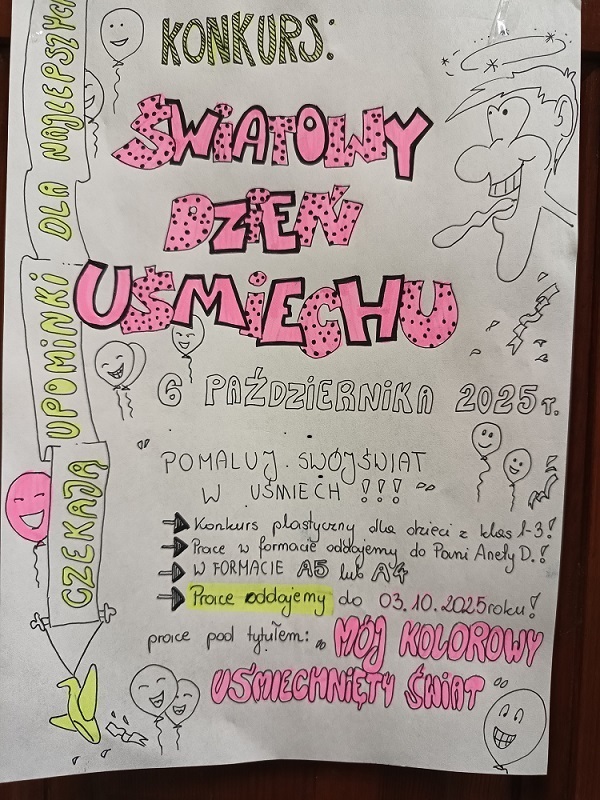 KONKURS:
ŚWIATOWY
DZIEŃ
UŚMIECHU
6 PAŹDZIERNIKA 2025r.
"POMALUJ SWÓJ ŚWIAT
W UŚMIECH!!!"
Konkurs plastyczny dla dzieci z klas 1-3!
Prace w formacie oddajemy do Pani Anety D.!
W FORMACIE A5 lub A4
Prace oddajemy do 03.10.2025 roku!
prace pod tytułem: "MÓJ KOLOROWY
UŚMIECHNIĘTY ŚWIAT"
CZEKAJĄ UPOMINKI DLA NAJLEPSZYCH